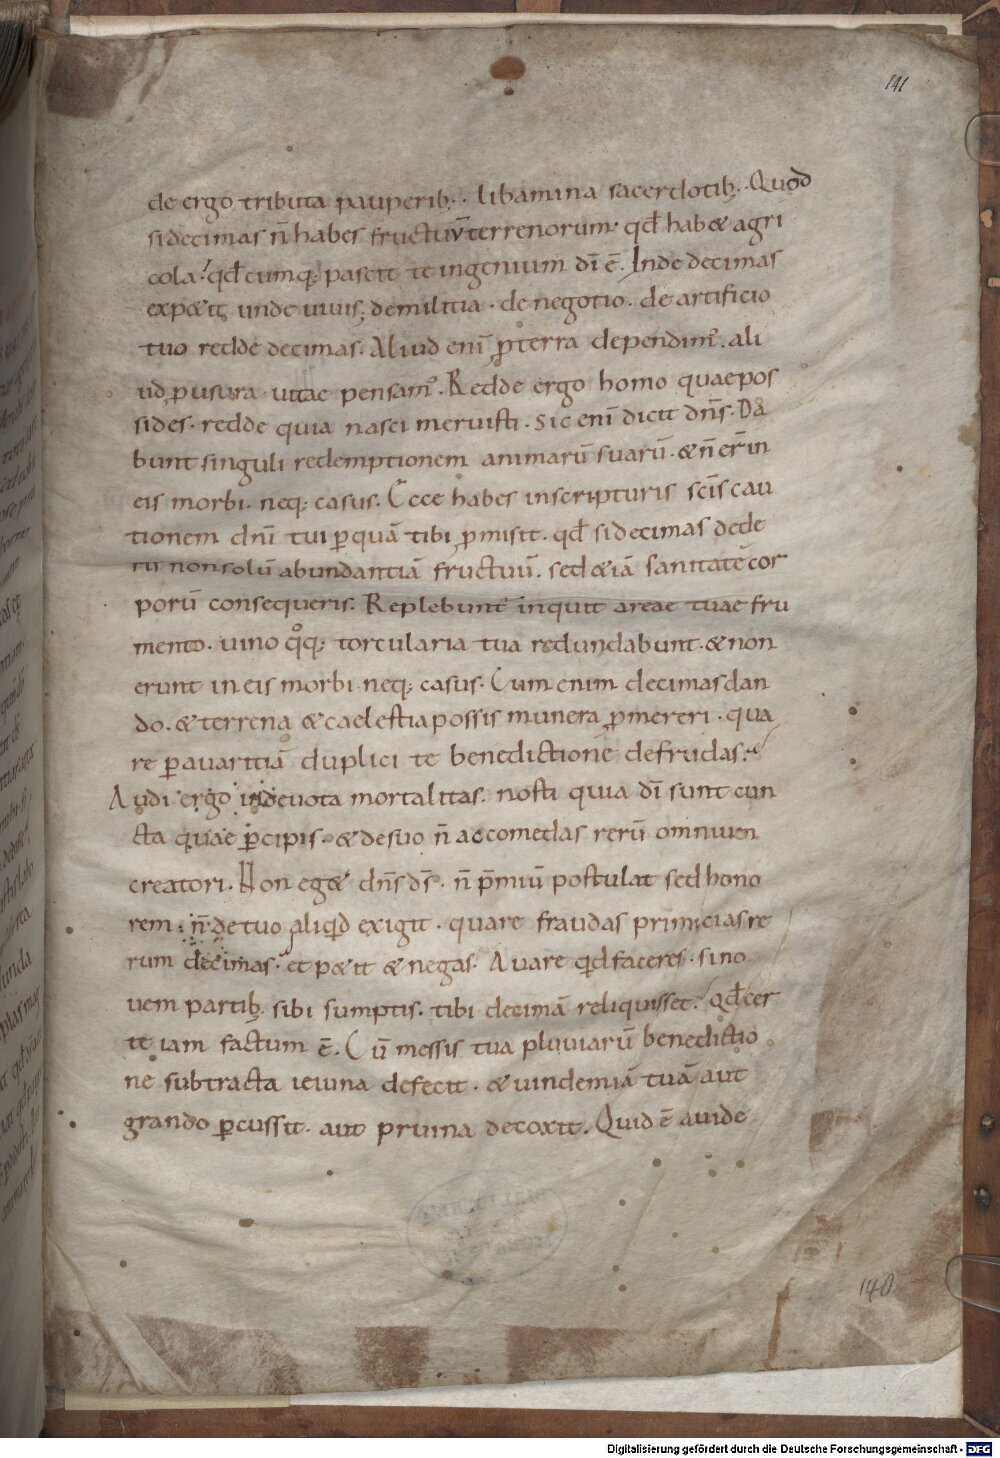 141
de ergo tributa pauperib;. libamina sacerdotib;. Quod
sidecimas n̄ habes fructuū terrenorum. qđ hab& agri
cola. qđcumq; pascit te ingenium dī ē. Inde decimas
exp&it unde uiuis; demilitia. de negotio. de artificio
tuo redde decimas. Aliud enī ꝓterra dependim᾽. ali
ud ꝓ usura uitae pensam᾽. Redde ergo homo quaepos
sides. redde quia nasci meruisti. Sic enī dicit dn̄s. Da
bunt singuli redemptionem animarū suarū. & n̄ er̄ in
eis morbi. neq; casus. Ecce habes inscripturis sc̄is cau
tionem dn̄i tui ꝑquā tibi ꝓmisit. qđ sidecimas dede
ris nonsolū abundantiā fructuū. sed &iā sanitatē cor
porū consequeris. Replebunt᾽ inquit areae tuae fru
mento. uino qͦq; torcularia tua redundabunt. & non
erunt in eis morbi neq; casus. Cum enim decimas dan
do. & terrena & caelestia possis munera ꝓmereri. qua
re ꝑ auaritiā duplici te benedictionē defrudas.
Audi ergo indeuota mortalitas. nosti quia dī sunt cun
cta quae ꝑcipis. & desuo n̄ accomedas rerū omnium
creatori. Non eg& dn̄s ds̄. n̄ p̄miū postulat sed hono
rem. n̄ detuo aliqđ exigit. quare fraudas primicias re
rum decimas. et p&it & negas. Auare qđ faceres. si no
uem partib; sibi sumptis. tibi decimā reliquisset. Qđ cer
te iam factum ē. Cū messis tua pluuiarū benedictio
ne subtracta ieiuna defecit. & uindemiā tuā aut
grando ꝑcussit. aut pruina decoxit. Quid ē auide
140
Digitalisierung gefördert durch die Deutsche Forschungsgemeinschaft - DFG